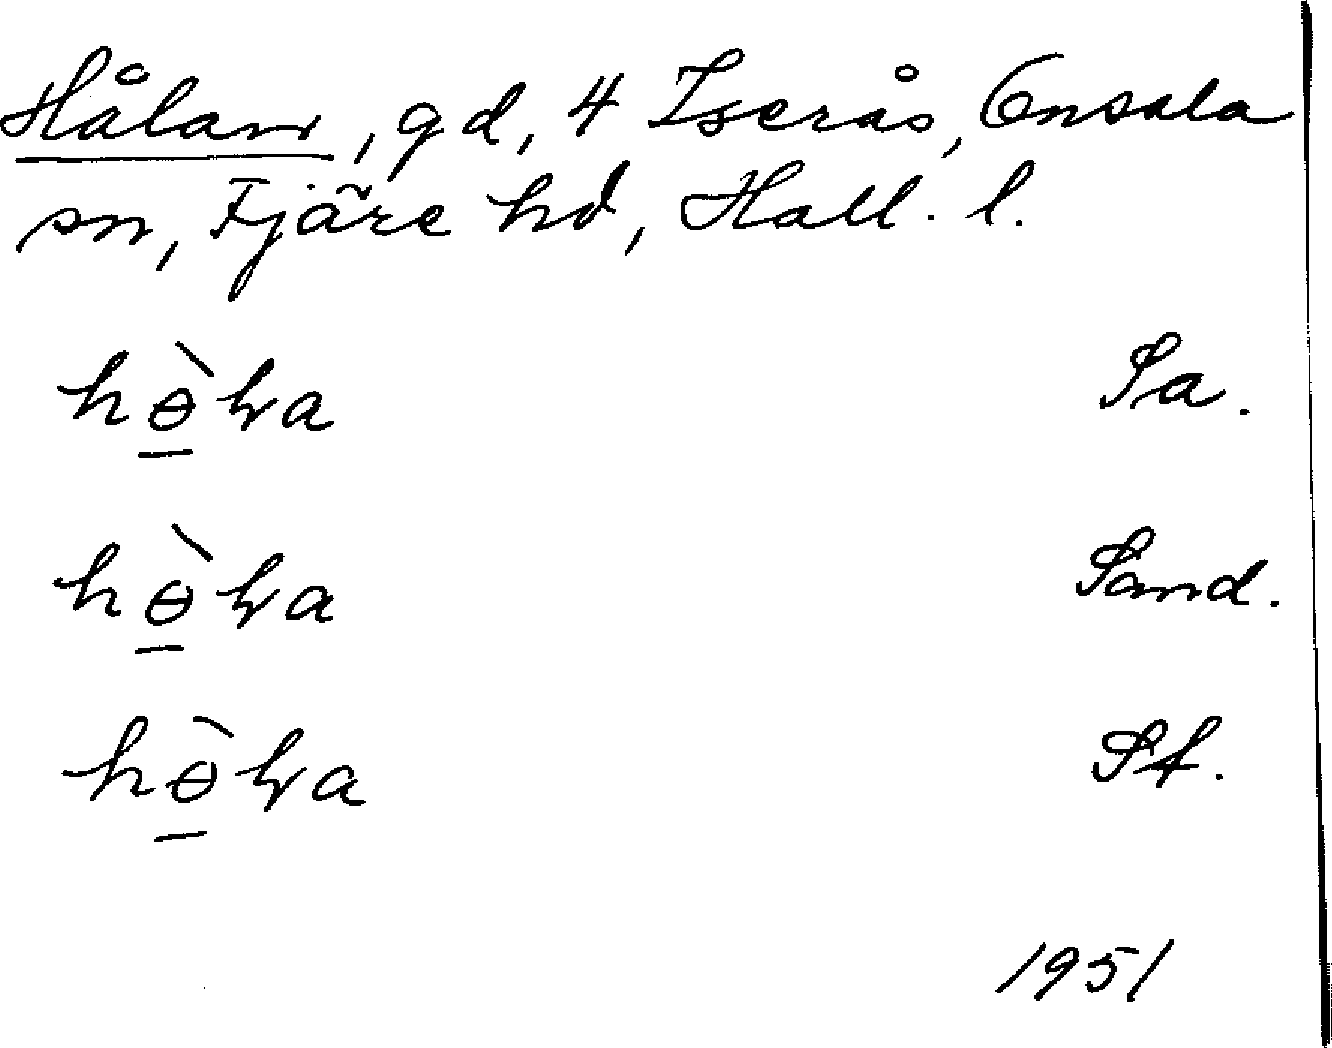 Hålan, gd, 4 Iserås, Onsala
sn, Fjäre hd, Hall. l.
hɵ̠̀ɫa Sa.
hɵ̠̀ɫa Sand.
hɵ̠̀ɫa St.
1951